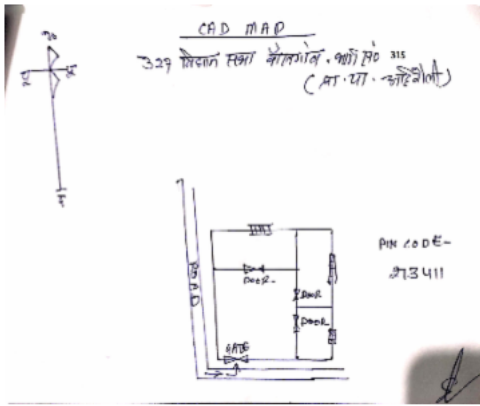 CAD MAP
327 विधान सभा बाँसगांव, भाग सं० 315
(प्रा. पा.
उ०
पू
प
द
ROAD
DOOR
DOOR
DOOR
GATE
PIN CODE-
273411